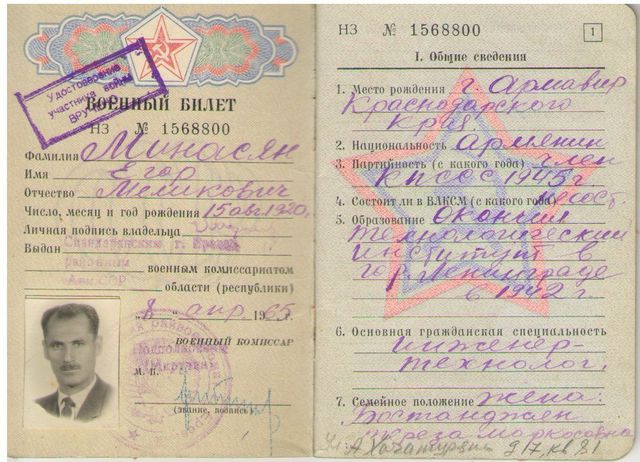 Удостоверение
участника войны
ВРУЧЕНО
ВОЕННЫЙ БИЛЕТ
НЗ № 1568800
Фамилия Минасян
Имя Егор
Отчество Меликович
Число, месяц и год рождения 15 авг 1920г
Личная подпись владельца
Выдан Спандарянским г. Еревана
районным военным комиссариатом
Арм.ССР области (республики)
"8" апр 1965г.
ВОЕННЫЙ КОМИССАР
Подполковник
М. П.
(звание, подпись)
НЗ № 1568800
1
I. Общие сведения
1. Место рождения г. Армавир
Краснодарского
края
2. Национальность армянин
3. Партийность (с какого года) член
КПСС 1945г
4. Состоит ли в ВЛКСМ (с какого года)
5. Образование окончил
технологический
институт в
гор. Ленинграде
в 1942г.
6. Основная гражданская специальность
инженер-
технолог.
7. Семейное положение жена:
Бостанджян
Марксовна
ул. А. Хачатуряна 917, кв 81